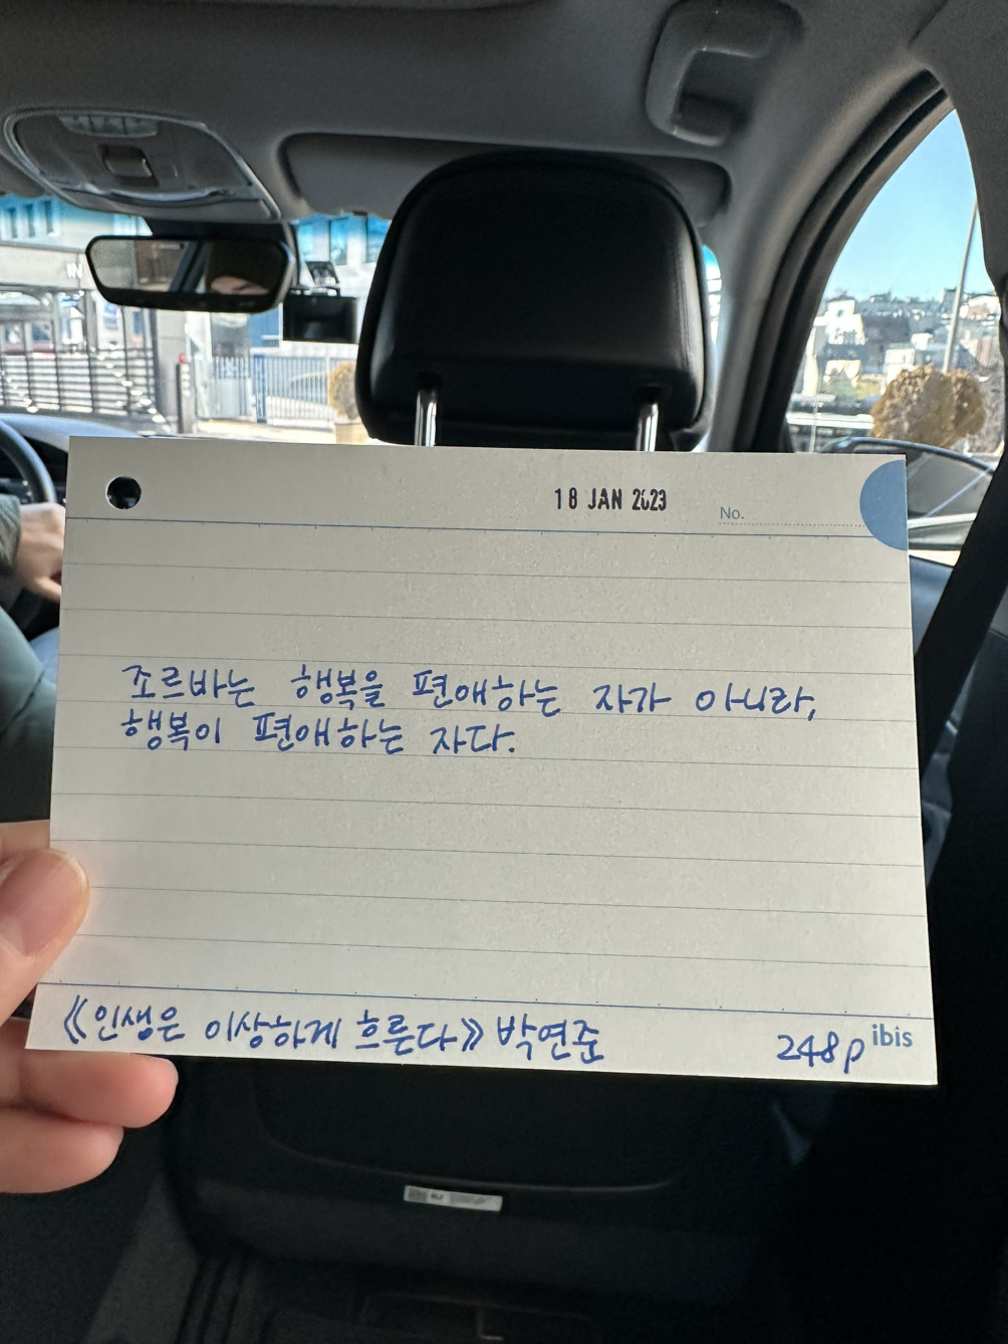 IN
18 JAN 2023
No.
조르바는 행복을 편애하는 자가 아니라,
행복이 편애하는 자다.
《인생은 이상하게 흐른다》 박연준
248p
ibis